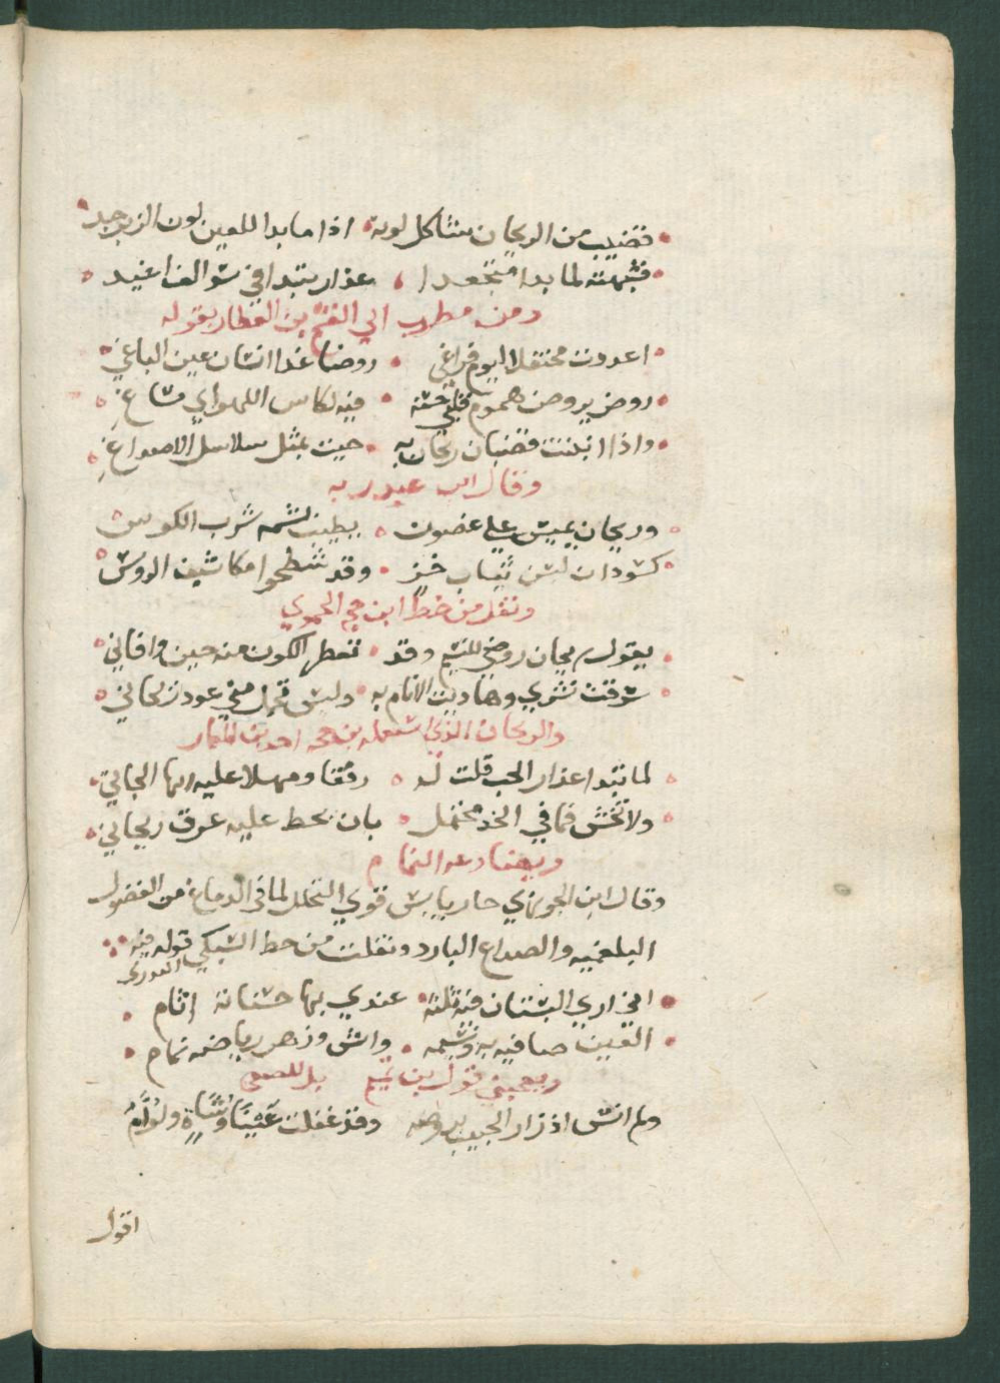 قضيب من الريحان شاكل لونه اذا ما بدا للعين لون الزبرجد
فشبهته لما بدا متجعدا عذار تبدا في سوالف اغيد
ومن مطرب ابي الفتح بن العطار بقوله
اعددت محتفلا ليوم فراغي روضا غدا انسان عين الباغي
روض يروض هموم قلبي حسنه فيه لكاس اللهو اي مساغ
واذا انثنت قضبان ريحان به حيت بمثل سلاسل الاصداغ
وقال ابن عبد ربه
وريحان يميس علي غصون يطيب لشمه شرب الكوس
كسودان لبسن ثياب خز وقد شطحوا مكاشيف الروس
ونقل من خط ابن حجر الحموي
يقول ريحان روضي للنسيم وقد تعطر الكون منه حين وافاني
سرقت نشري وهاديت الانام به وليس تحمل مني عود ريحاني
والريحان الذي استعمله بن حجه احد بن المعمار
لما تبدا عذار الحب قلت له رفقا ومهلا عليه ايها الجاني
ولا تخش فما في الخد محتمل بان يحط عليه عرق ريحاني
وبعضادعه النمام
وقال ابن الجوزي حار يابس قوي التحلل لما في الدماغ من الفضول
البلغميه والصداع البارد ونقلت من خط السبكي قوله فيه
الدوري
اني اري البستان فيه ثلثة عندي بها حسناته اثام
العين صافيه به ونسيمه واش وزهر رياضه نمام
ويعجبني قول بن تميم بل للصفي
ولم انس اذ زار الحبيب بروضه وقد غفلت عنا وشاة ولوام
اقول